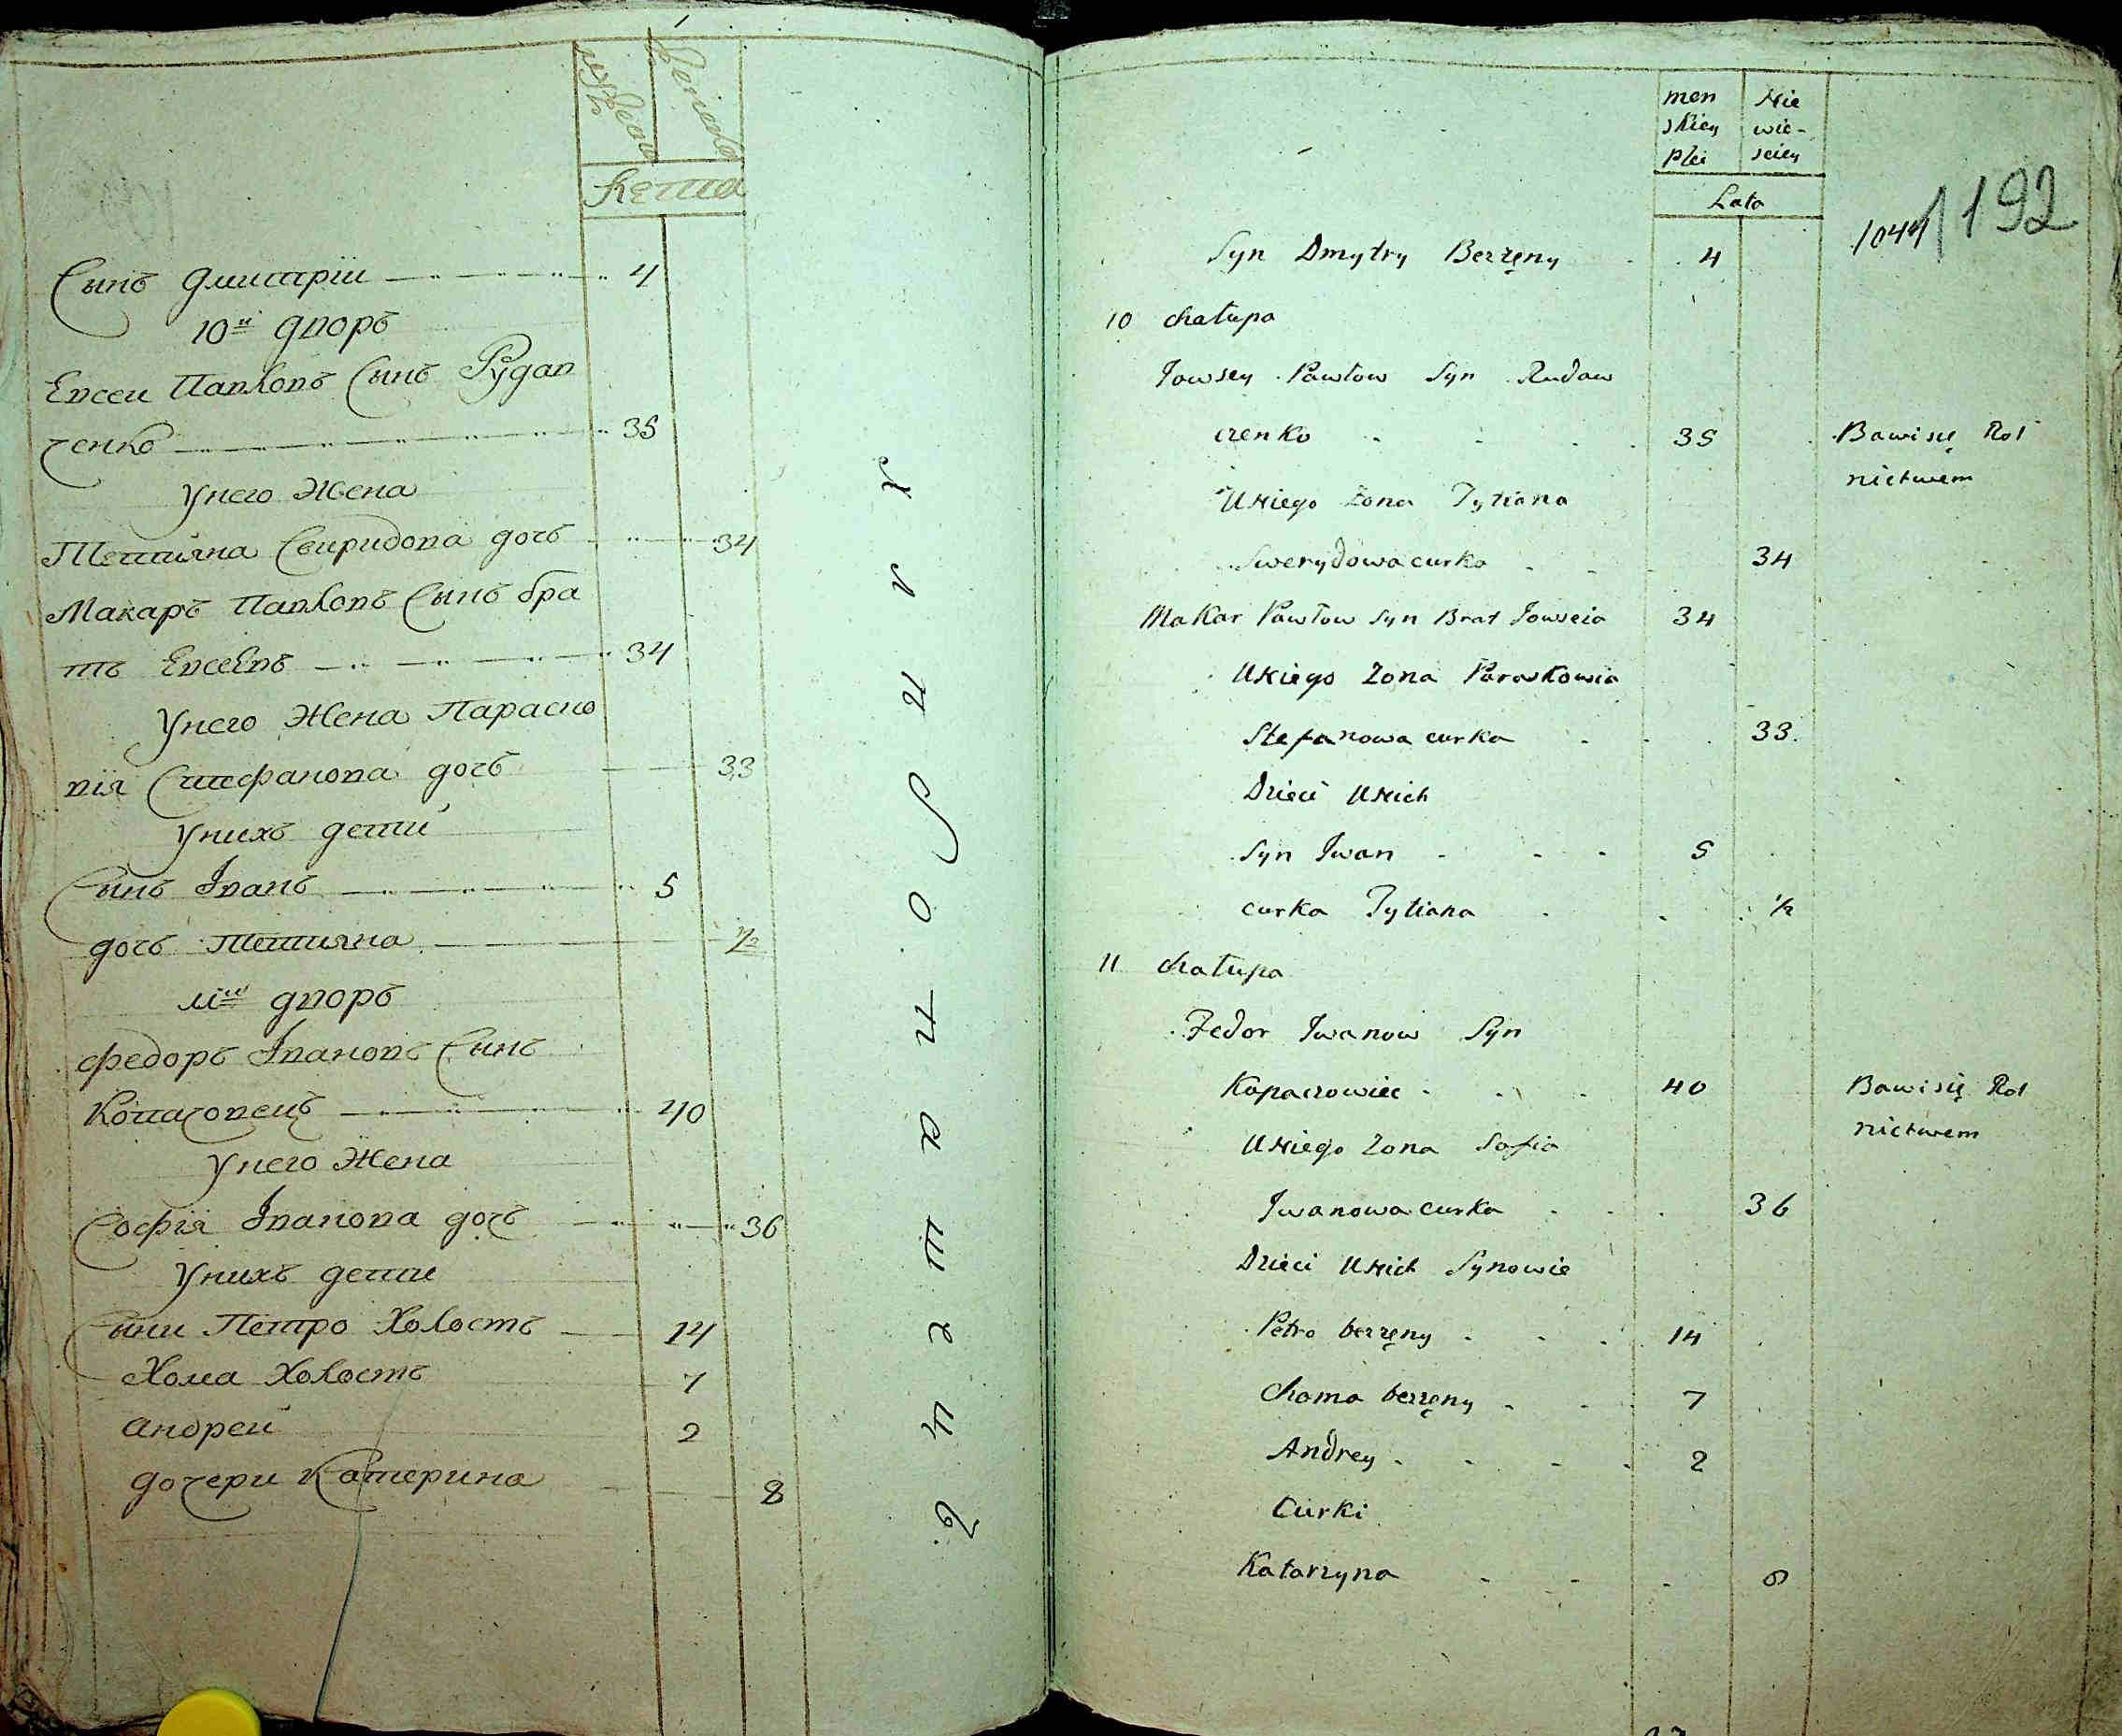 мужеска
женска
лета
Сынъ Дмитрiй 4
10й дворъ
Евсей Павловъ Сынъ Рудав
ченко 35
Унего Жена
Тетияна Свиридова дочъ 34
Макаръ Павловъ Сынъ бра
тъ Евсеевъ 34
Унего Жена Параско
вiя Стефанова дочъ 33
Унихъ дети
Сынъ Iванъ 5
дочъ Тетияна 1/2
11й дворъ
Федоръ Iвановъ Сынъ
Копачовецъ 40
Унего Жена
Софiя Iванова дочъ 36
Унихъ дети
Сыни Петро Холостъ 14
Хома Холостъ 7
Андрей 2
дочери Катерина 8
men Nie
skiey wie-
płci sciey
Lata
1044 192
Syn Dmytry Bezżęny 4
10 chałupa
Jowsey Pawłow Syn Rudaw
czenko 35 Bawi się Rol
nictwem
U Niego Żona Tytiana
Swerydowa curka 34
Makar Pawłow Syn Brat Jowseia 34
U Niego Żona Paraskowia
Stefanowa curka 33
Dzieci U Nich
Syn Iwan 5
curka Tytiana 1/2
11 chałupa
Fedor Iwanow Syn
Kopaczowiec 40 Bawi się Rol
nictwem
U Niego Żona Sofia
Iwanowa curka 36
Dzieci U Nich Synowie
Petro bezżęny 14
Choma bezżęny 7
Andrey 2
Curki
Katarzyna 8